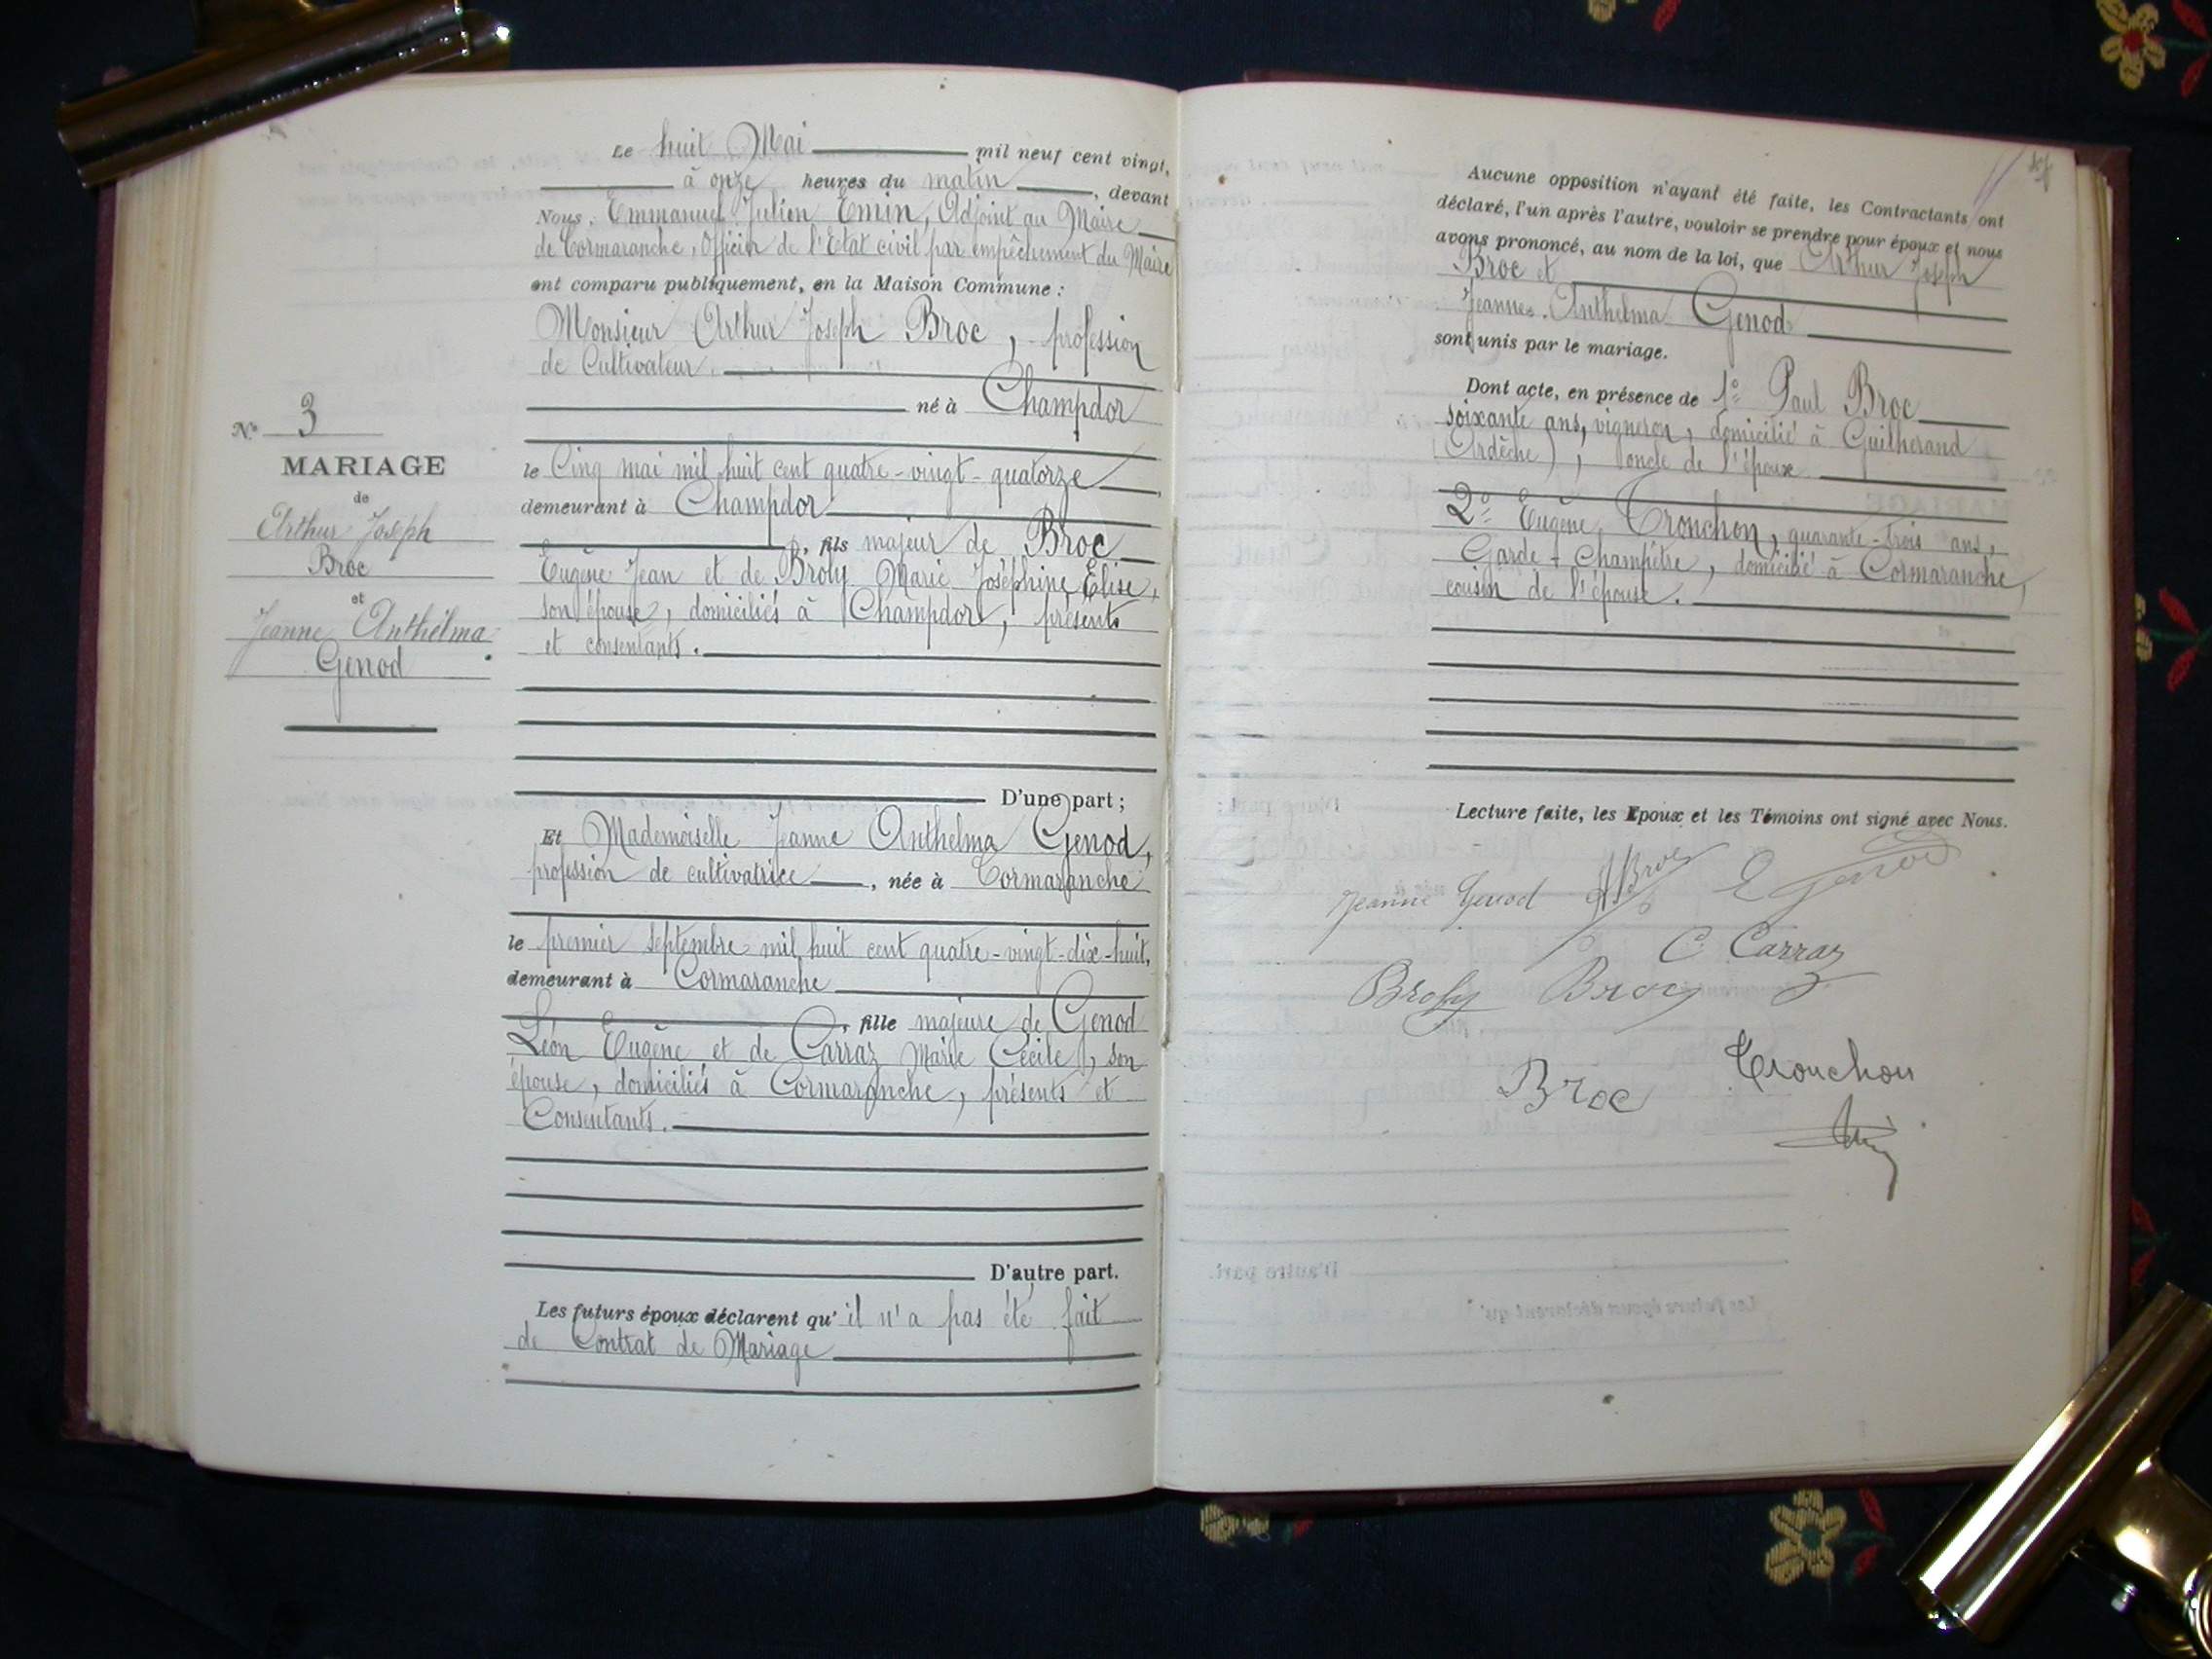 Le huit Mai mil neuf cent vingt,
à onze heures du matin, devant
Nous, Emmanuel Julien Emin, Adjoint au Maire
de Cormaranche, Officier de l'Etat civil par empêchement du Maire
ont comparu publiquement, en la Maison Commune :
Monsieur Arthur Joseph Broc, profession
de Cultivateur.
né à Champdor
le Cinq mai mil huit cent quatre-vingt-quatorze
demeurant à Champdor
, fils majeur de Broc
Eugène Jean et de Broly Marie Joséphine Elise,
son épouse, domiciliés à Champdor, présents
et consentants.
D'une part ;
Et Mademoiselle Jeanne Anthelma Genod,
profession de cultivatrice, née à Cormaranche
le premier septembre mil huit cent quatre-vingt-dix-huit,
demeurant à Cormaranche
, fille majeure de Genod
Léon Eugène et de Carraz Marie Cécile, son
épouse, domiciliés à Cormaranche, présents et
Consentants.
D'autre part.
Les futurs époux déclarent qu'il n'a pas été fait
de Contrat de Mariage
No 3
MARIAGE
de
Arthur Joseph
Broc
et
Jeanne Anthelma
Genod
Aucune opposition n'ayant été faite, les Contractants ont
déclaré, l'un après l'autre, vouloir se prendre pour époux et nous
avons prononcé, au nom de la loi, que Arthur Joseph
Broc et
Jeanne Anthelma Genod
sont unis par le mariage.
Dont acte, en présence de 1o Paul Broc
soixante ans, vigneron, domicilié à Guilherand
(Ardèche), oncle de l'époux
2o Eugène Tronchon, quarante-trois ans,
Garde-Champêtre, domicilié à Cormaranche,
cousin de l'épouse.
Lecture faite, les Epoux et les Témoins ont signé avec Nous.
Jeanne Genod A Broc E Genod
C Carraz
Broly Broc
Broc Tronchon